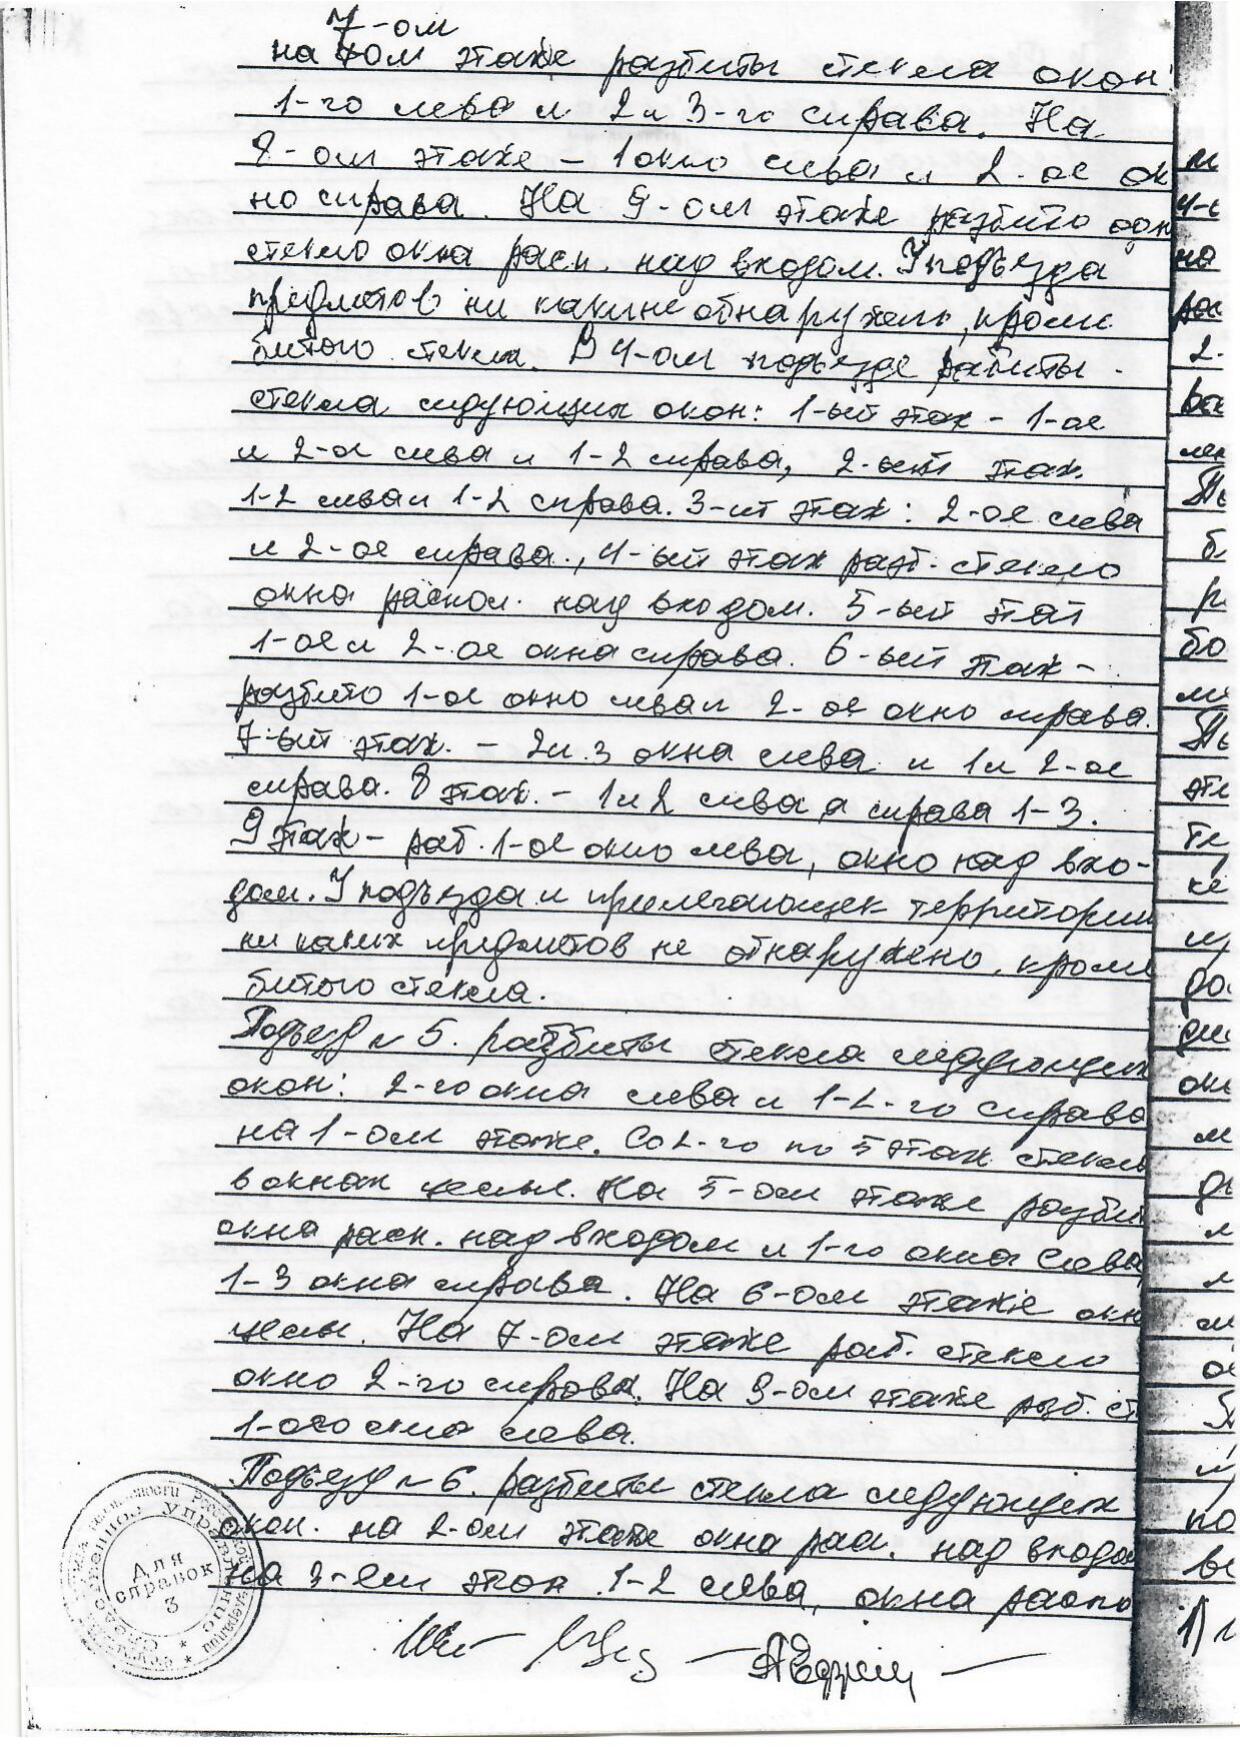 7-ом
на ном этаже разбиты стекла окон:
1-го лева и 2 и 3-го справа. На
8-ом этаже – 1 окно слева и 2-ое ок
но справа. На 9-ом этаже разбито одн
стекло окна расп. над входом. У подъезда
предметов ни каких не обнаружено, кроме
битого стекла. В 4-ом подъезде разбиты
стекла следующих окон: 1-ый этаж – 1-ое
и 2-ое слева и 1-2 справа, 2-ый этаж.
1-2 слева и 1-2 справа. 3-ий этаж: 2-ое слева
и 2-ое справа., 4-ый этаж разб. стекло
окна распол. над входом. 5-ый этаж
1-ое и 2-ое окна справа. 6-ый этаж –
разбито 1-ое окно слева и 2-ое окно справа.
7-ый этаж. – 2 и 3 окна слева и 1 и 2-ое
справа. 8 этаж. – 1 и 2 слева, а справа 1-3.
9 этаж – раб. 1-ое окно слева, окно над вхо-
дом. У подъезда и прилегающей территории
ни каких предметов не обнаружено, кроме
битого стекла.
Подъезд № 5. разбиты стекла следующих
окон: 2-го окна слева и 1-2-го справа
на 1-ом этаже. Со 2-го по 5 этаж стекла
в окнах целы. На 5-ом этаже разби
окна расп. над входом и 1-го окна слева,
1-3 окна справа. На 6-ом этаже окн
целы. На 7-ом этаже раб. стекло
окно 2-го справа. На 9-ом этаже разб. ст
1-ого окна слева.
Подъезд № 6. разбиты стекла следующих
окон. на 2-ом этаже окна рас. над входом
На 3-ем этаж 1-2 слева, окна распо
Для
справок
3
Следственное Управление